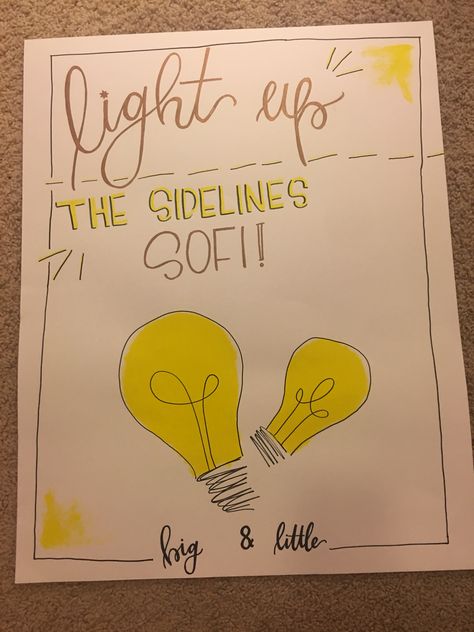 light up
THE SIDELINES
SOFI!
big & little